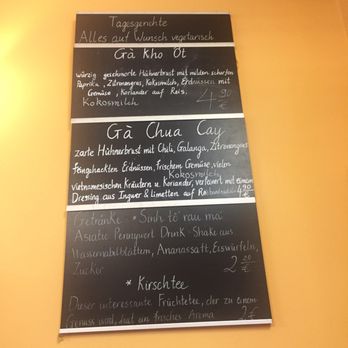 Tagesgerichte
Alles auf Wunsch vegetarisch
Gà Kho Ớt
würzig geschmorte Hühnerbrust mit milden scharfen
Paprika, Zitronengras, Kokosmilch, Erdnüssen mit
Gemüse, Koriander auf Reis.
Kokosmilch
4,90 €
Gà Chua Cay
zarte Hühnerbrust mit Chili, Galanga, Zitronengras
feingehackten Erdnüssen, frischem Gemüse, vielen
Kokosmilch
vietnamesischen Kräutern u. Koriander, verfeinert mit einem
Dressing aus Ingwer & Limetten auf Reis
4,90 €
Getränke * Sinh tố rau má
Asiatic Pennywort Drink-Shake aus
Wassernabelblättern, Ananassaft, Eiswürfeln,
Zucker
2,20 €
* Kirschtee
Dieser interessante Früchtetee, der zu einem
Genuss wird, hat ein frisches Aroma 2 €